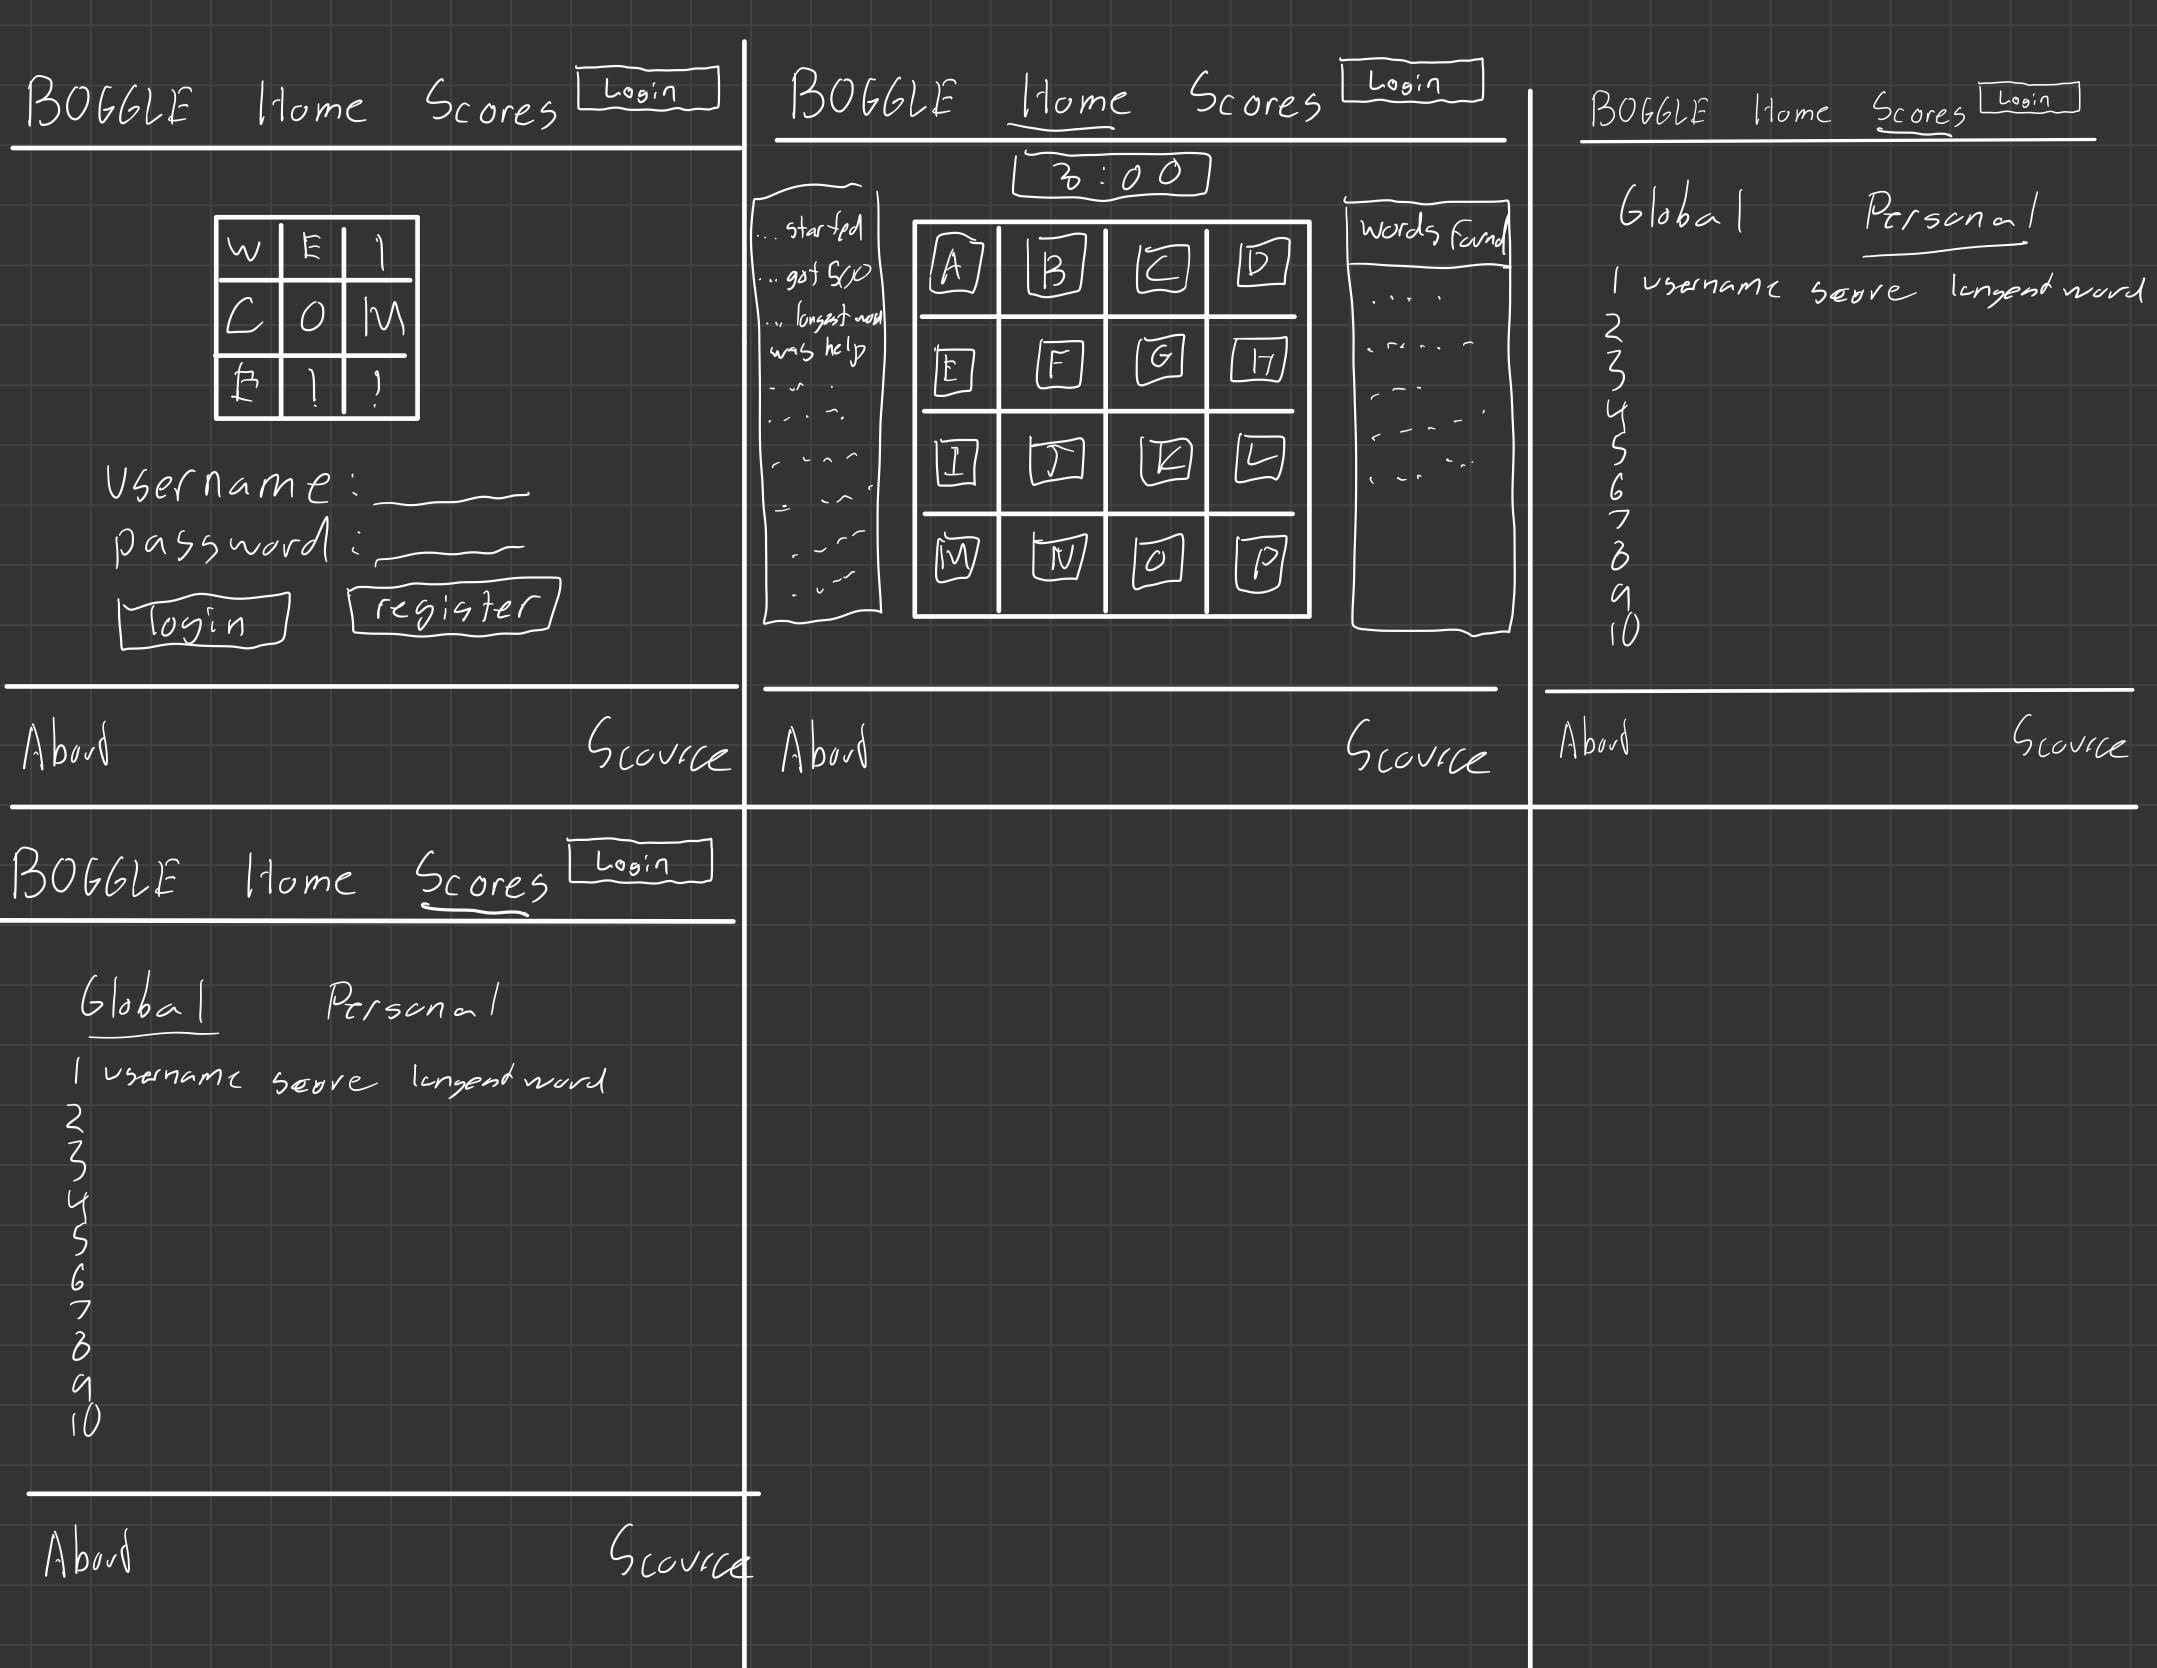 BOGGLE Home Scores Login
W E L
C O M
E ! !
username:
password:
login register
About Source
BOGGLE Home Scores Login
3:00
... started
... got 500
... longest word
was help
A B C D
E F G H
I J K L
M N O P
words found
About Source
BOGGLE Home Scores Login
Global Personal
1 username score longest word
2
3
4
5
6
7
8
9
10
About Source
BOGGLE Home Scores Login
Global Personal
1 username score longest word
2
3
4
5
6
7
8
9
10
About Source